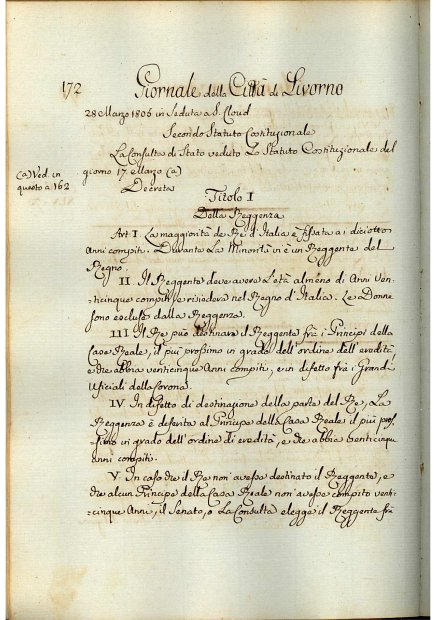 172
Giornale della Città di Livorno
28 Marzo 1805 in Seduta a S. Cloud
Secondo Statuto Costituzionale
La Consulta di Stato veduto Lo Statuto Costituzionale del
giorno 17. Marzo (a)
(a) Ved. in
questo a 162
Decreta
Titolo I
Della Reggenza
Art I. La maggiorità de Re d'Italia è fissata a' diciotto
anni compiti. Durante La Minorità vi è un Reggente del
Regno.
II. Il Reggente deve avere L'età almeno di Anni Ven-
ticinque compiti, e risiederà nel Regno d'Italia. Le Donne
sono escluse dalla Reggenza.
III Il Re può destinare il Reggente frà i Principi della
Casa Reale, il più prossimo in grado dell'ordine dell'eredità
e che abbia venticinque Anni compiti, e in difetto frà i Grandi
Uficiali della Corona.
IV. In difetto di destinazione della parte del Re, La
Reggenza è deferita al Principe della Casa Reale il più pros-
simo in grado dell'ordine di eredità, e che abbia venticinque
anni compiti.
V. In caso che il Re non avesse destinato il Reggente, e
che alcun Principe della Casa Reale non avesse compito venti-
=cinque Anni, il Senato, o La Consulta elegge il Reggente frà